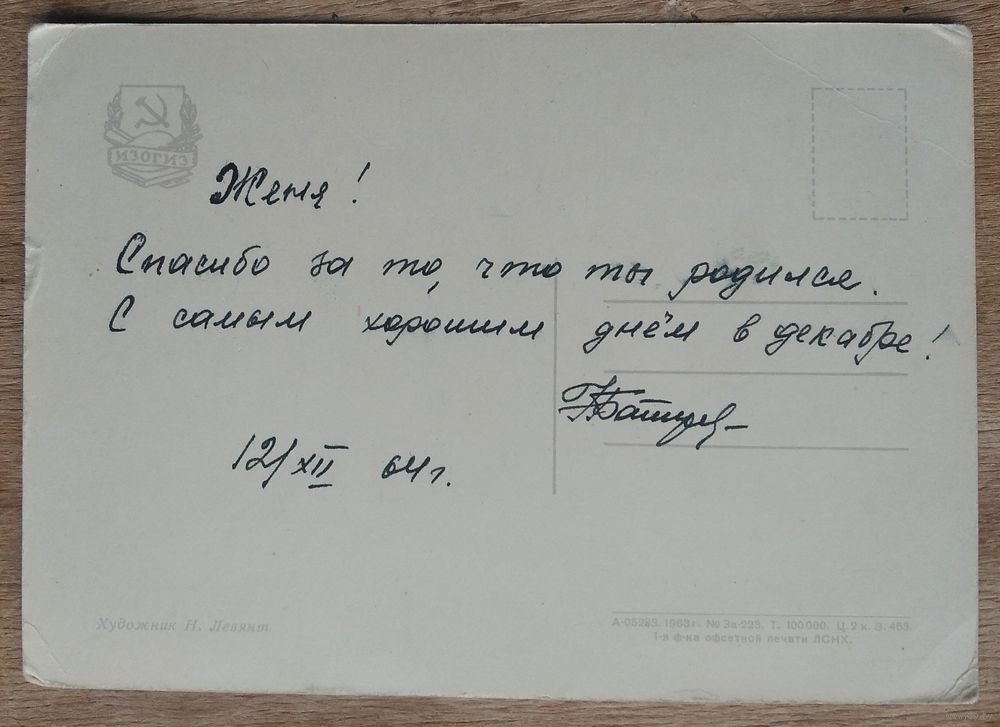 ИЗОГИЗ
Женя!
Спасибо за то, что ты родился.
С самым хорошим днём в декабре!
12/XII 64 г.
Художник Н. Левянт
А-05283. 1963 г. № За-223. Т. 100 000. Ц. 2 к. З. 453.
1-я ф-ка офсетной печати ЛСНХ.